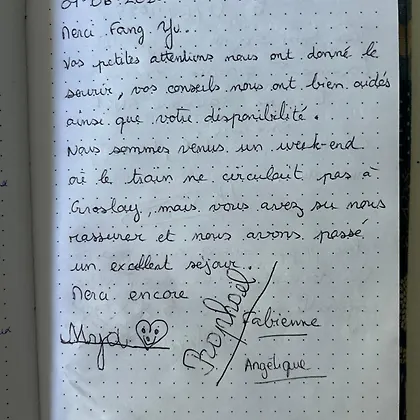 Merci Fang Yu..
Vos petites attentions nous ont donné le
sourir, vos conseils nous ont bien aidés
ainsi que votre disponibilité.
Nous sommes venus un week-end
où le train ne circulait pas à
Groslay, mais vous avez su nous
rassurer et nous avons passé
un excellent séjour.
Merci encore
Maja
Raphaël
Fabienne
Angélique